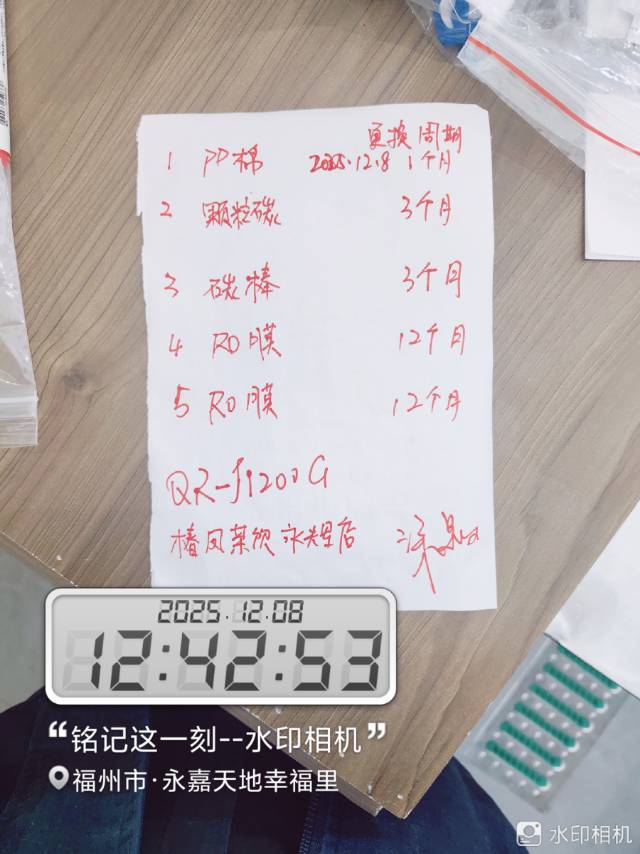 更换周期
1 PP棉 2025.12.8 1个月
2 颗粒碳 3个月
3 碳棒 3个月
4 RO膜 12个月
5 RO膜 12个月
QR-J1200G
椿凤茶饮 永辉店
2025.12.08
12:42:53
“铭记这一刻--水印相机”
福州市·永嘉天地幸福里
水印相机